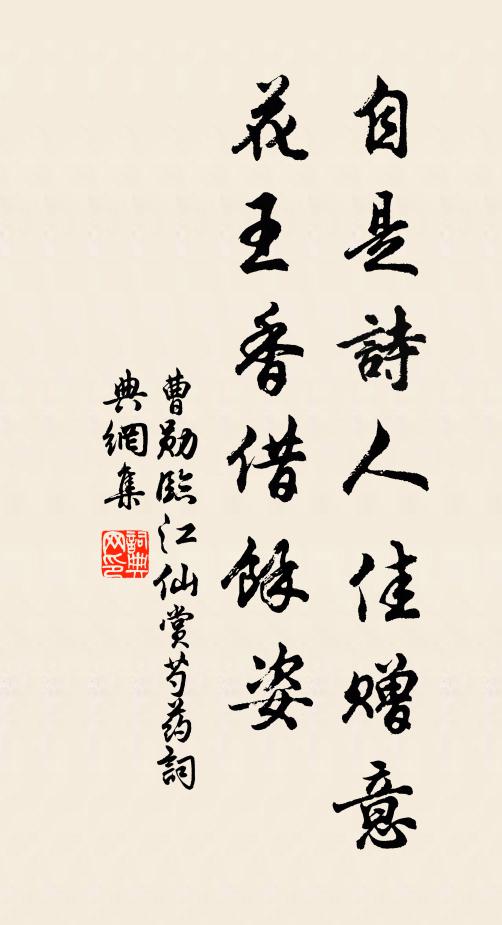 自是詩人佳贈意
花王香借餘姿
曹勛臨江仙賞芍药詞
典網集
詞典网印